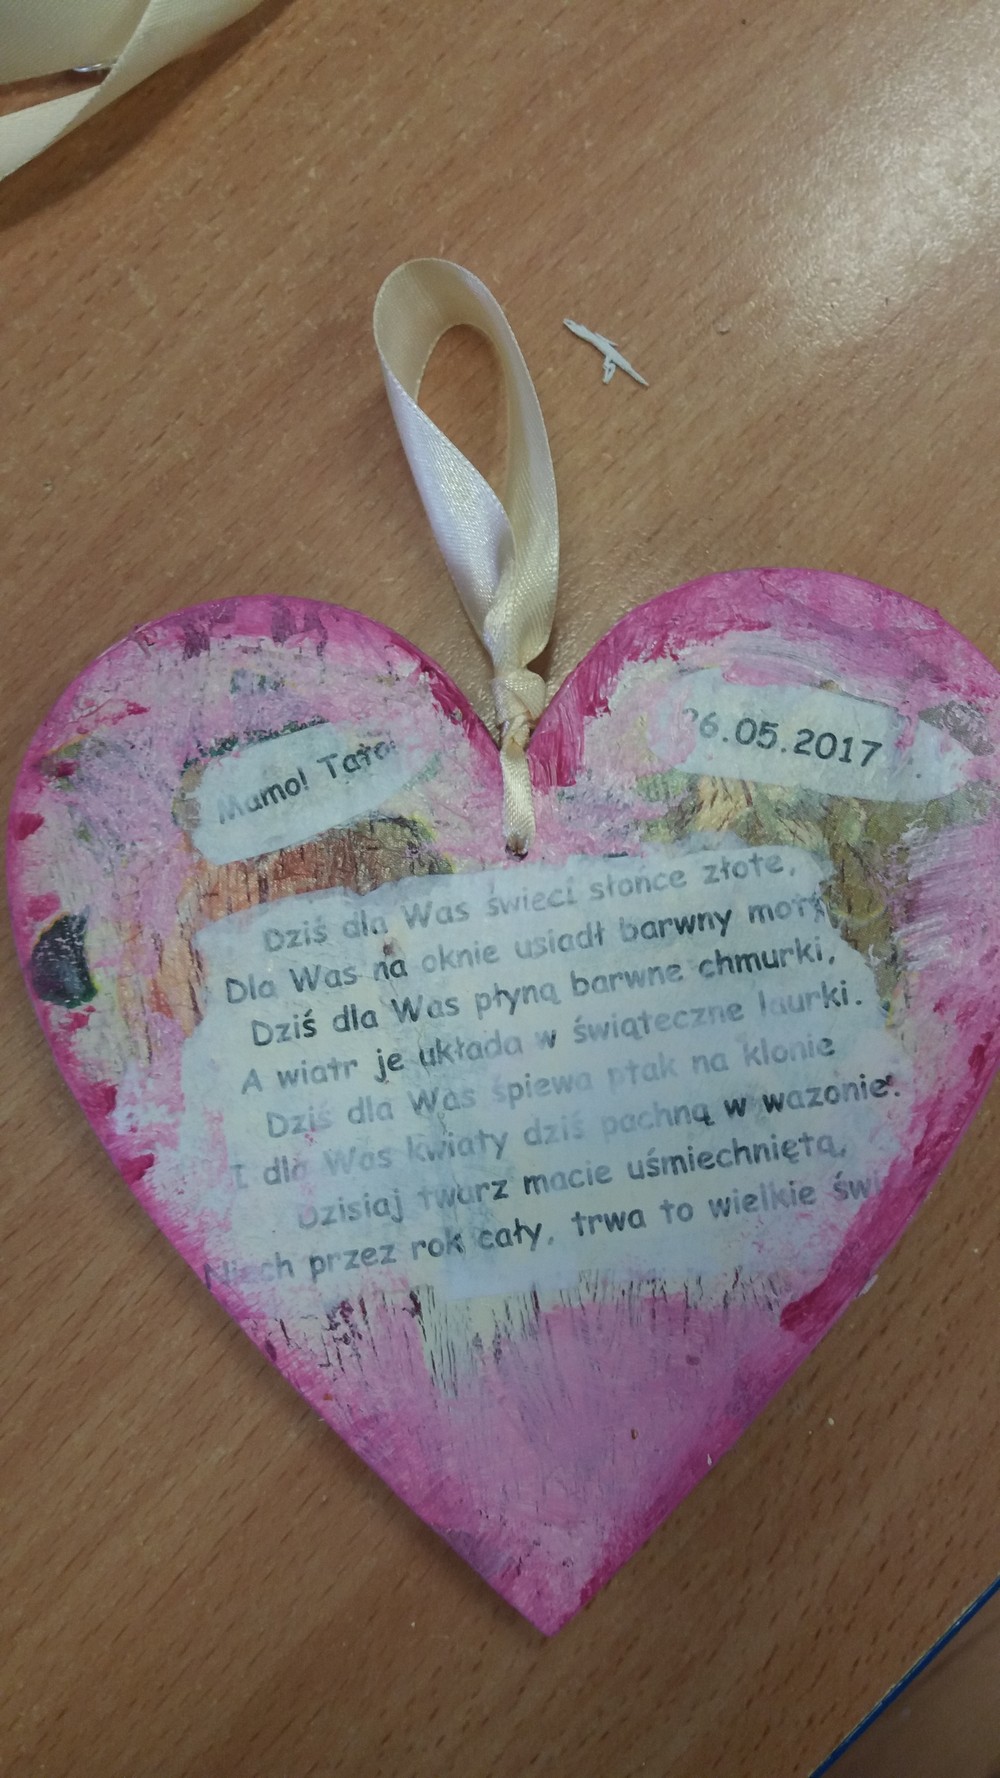 Mamo! Tato!
26.05.2017
Dziś dla Was świeci słońce złote,
Dla Was na oknie usiadł barwny
Dziś dla Was płyną barwne chmurki,
A wiatr je układa w świąteczne laurki.
Dziś dla Was śpiewa ptak na klonie
I dla Was kwiaty dziś pachną w wazonie.
Dzisiaj twarz macie uśmiechniętą,
Niech przez rok cały, trwa to wielkie